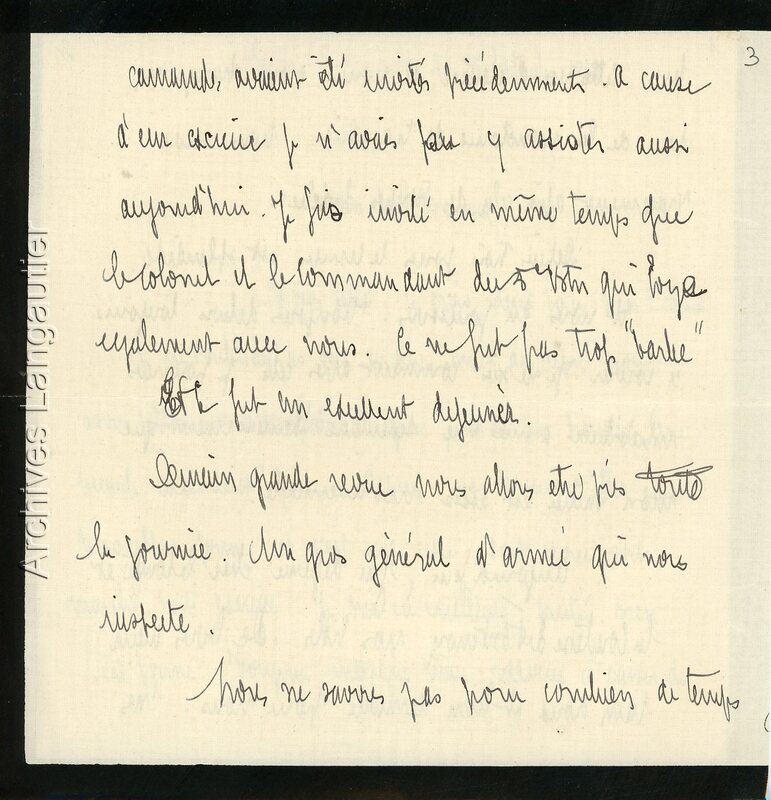 3
camarades avaient été invités précédemment. A cause
d'un exercice je n'avais pu y assister aussi
aujourd'hui. Je fus invité en même temps que
le Colonel et le Commandant du 5e Btn qui loge
egalement avec nous. Ce ne fut pas trop "barbe"
Et ce fut un excellent dejeuner.
Demain grande revue nous allons etre pris toute
la journée. Un gros général d'armée qui nous
inspecte.
Nous ne savons pas pour combien de temps
Archives Langautier